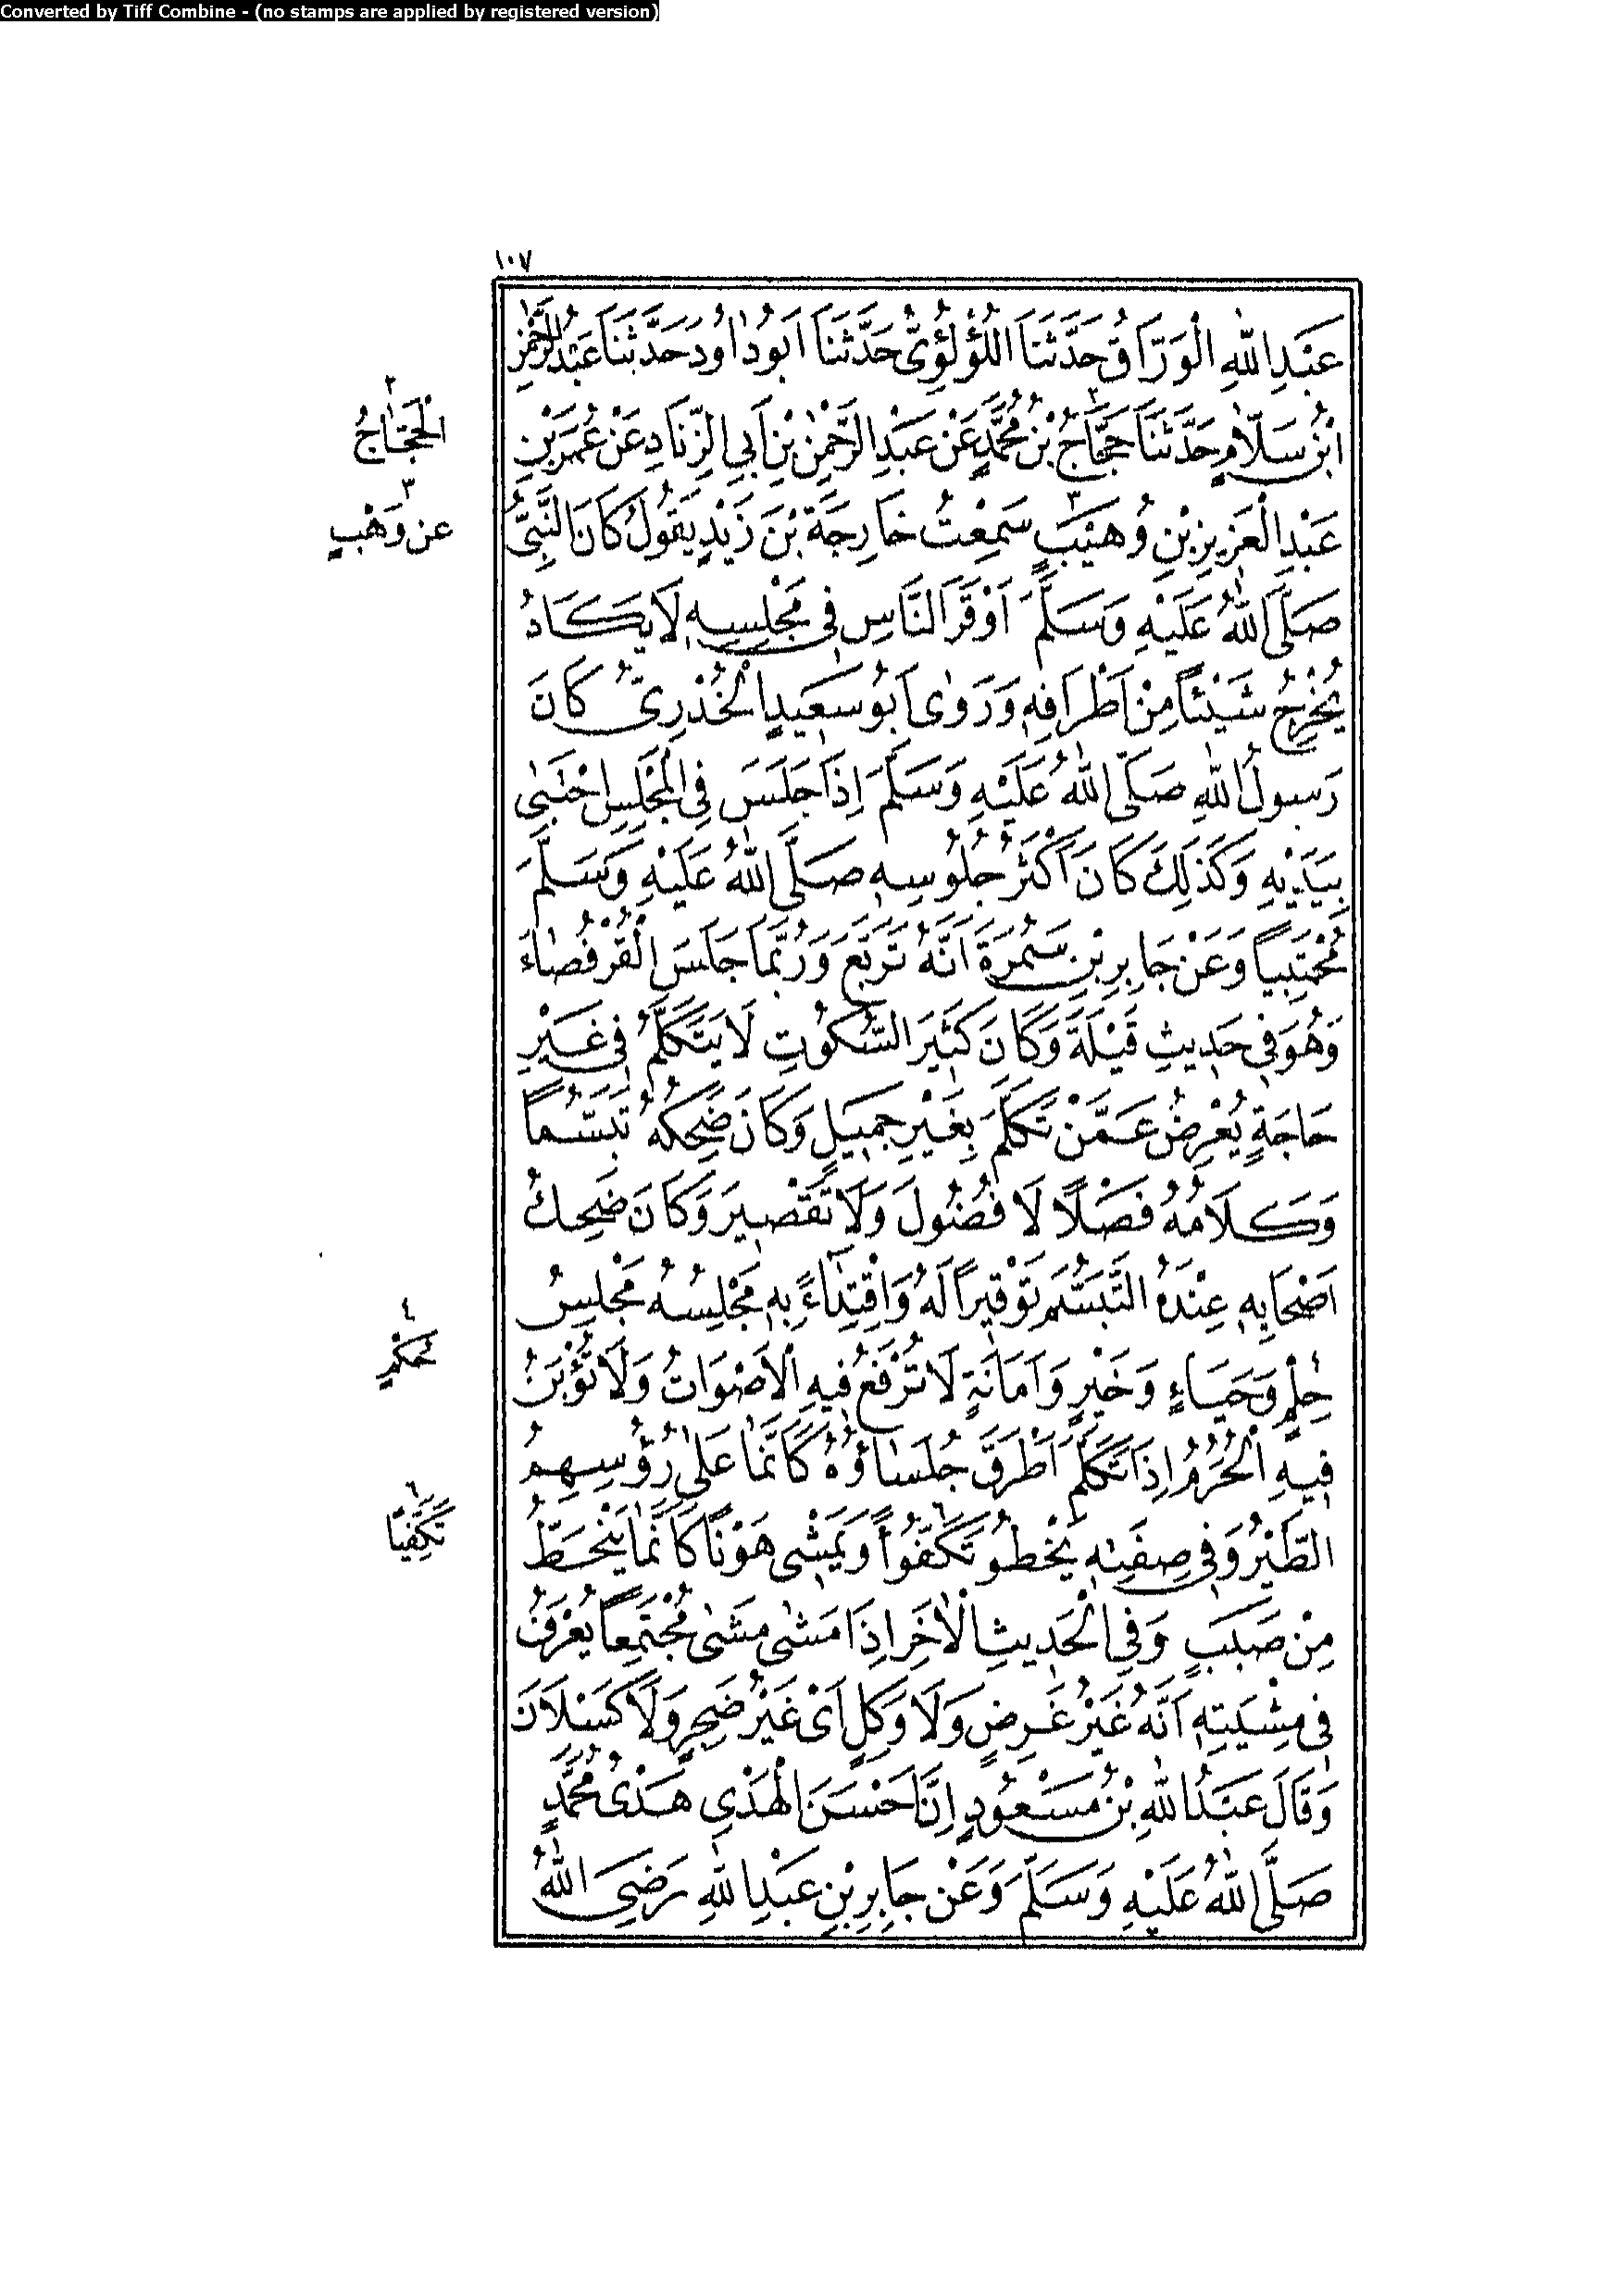 Converted by Tiff Combine - (no stamps are applied by registered version)
١٠٧
عَبْدِ اللهِ الْوَرَّاقُ حَدَّثَنَا اللُّؤْلُؤِيُّ حَدَّثَنَا اَبُو دَاوُدَ حَدَّثَنَا عَبْدُ الرَّحْمٰنِ
ابْنُ سَلَّامٍ حَدَّثَنَا حَجَّاجُ٢ بْنُ مُحَمَّدٍ عَنْ عَبْدِ الرَّحْمٰنِ بْنِ اَبِي الزِّنَادِ عَنْ عُمَرَ بْنِ
عَبْدِ الْعَزِيزِ بْنِ وُهَيْبٍ٣ سَمِعْتُ خَارِجَةَ بْنَ زَيْدٍ يَقُولُ كَانَ النَّبِيُّ
صَلَّى اللهُ عَلَيْهِ وَسَلَّمَ اَوْقَرَ النَّاسِ فِي مَجْلِسِهِ لَا يَكَادُ
يُخْرِجُ شَيْئًا مِنْ اَطْرَافِهِ وَرَوٰى اَبُو سَعِيدٍ الْخُدْرِيُّ كَانَ
رَسُولُ اللهِ صَلَّى اللهُ عَلَيْهِ وَسَلَّمَ اِذَا جَلَسَ فِي الْمَجْلِسِ احْتَبٰى
بِيَدَيْهِ وَكَذٰلِكَ كَانَ اَكْثَرُ جُلُوسِهِ صَلَّى اللهُ عَلَيْهِ وَسَلَّمَ
مُحْتَبِيًا وَعَنْ جَابِرِ بْنِ سَمُرَةَ اَنَّهُ تَرَبَّعَ وَرُبَّمَا جَلَسَ الْقُرْفُصَاءَ
وَهُوَ فِي حَدِيثِ قَيْلَةَ وَكَانَ كَثِيرَ السُّكُوتِ لَا يَتَكَلَّمُ فِي غَيْرِ
حَاجَةٍ يُعْرِضُ عَمَّنْ تَكَلَّمَ بِغَيْرِ جَمِيلٍ وَكَانَ ضِحْكُهُ تَبَسُّمًا
وَكَلَامُهُ فَصْلًا لَا فُضُولَ وَلَا تَقْصِيرَ وَكَانَ ضَحِكُ
اَصْحَابِهِ عِنْدَهُ التَّبَسُّمَ تَوْقِيرًا لَهُ وَاقْتِدَاءً بِهِ مَجْلِسُهُ مَجْلِسُ
حِلْمٍ٤ وَحَيَاءٍ وَخَيْرٍ وَاَمَانَةٍ لَا تُرْفَعُ فِيهِ الْاَصْوَاتُ وَلَا تُؤْبَنُ
فِيهِ الْحُرَمُ اِذَا تَكَلَّمَ اَطْرَقَ جُلَسَاؤُهُ كَاَنَّمَا عَلٰى رُؤُسِهِمُ
الطَّيْرُ وَفِي صِفَتِهِ يَخْطُو تَكَفُّؤًا٦ وَيَمْشِي هَوْنًا كَاَنَّمَا يَنْحَطُّ
مِنْ صَبَبٍ وَفِي الْحَدِيثِ الْاٰخَرِ اِذَا مَشٰى مَشٰى مُجْتَمِعًا يُعْرَفُ
فِي مِشْيَتِهِ اَنَّهُ غَيْرُ غَرِضٍ وَلَا وَكِلٍ اَيْ غَيْرُ ضَجِرٍ وَلَا كَسْلَانَ
وَقَالَ عَبْدُ اللهِ بْنُ مَسْعُودٍ اِنَّ اَحْسَنَ الْهَدْيِ هَدْيُ مُحَمَّدٍ
صَلَّى اللهُ عَلَيْهِ وَسَلَّمَ وَعَنْ جَابِرِ بْنِ عَبْدِ اللهِ رَضِيَ اللهُ
٢
الْحَجَّاجُ
٣
عن وَهْبٍ
٤
حُكْمٍ
٦
تَكَفِّيًا